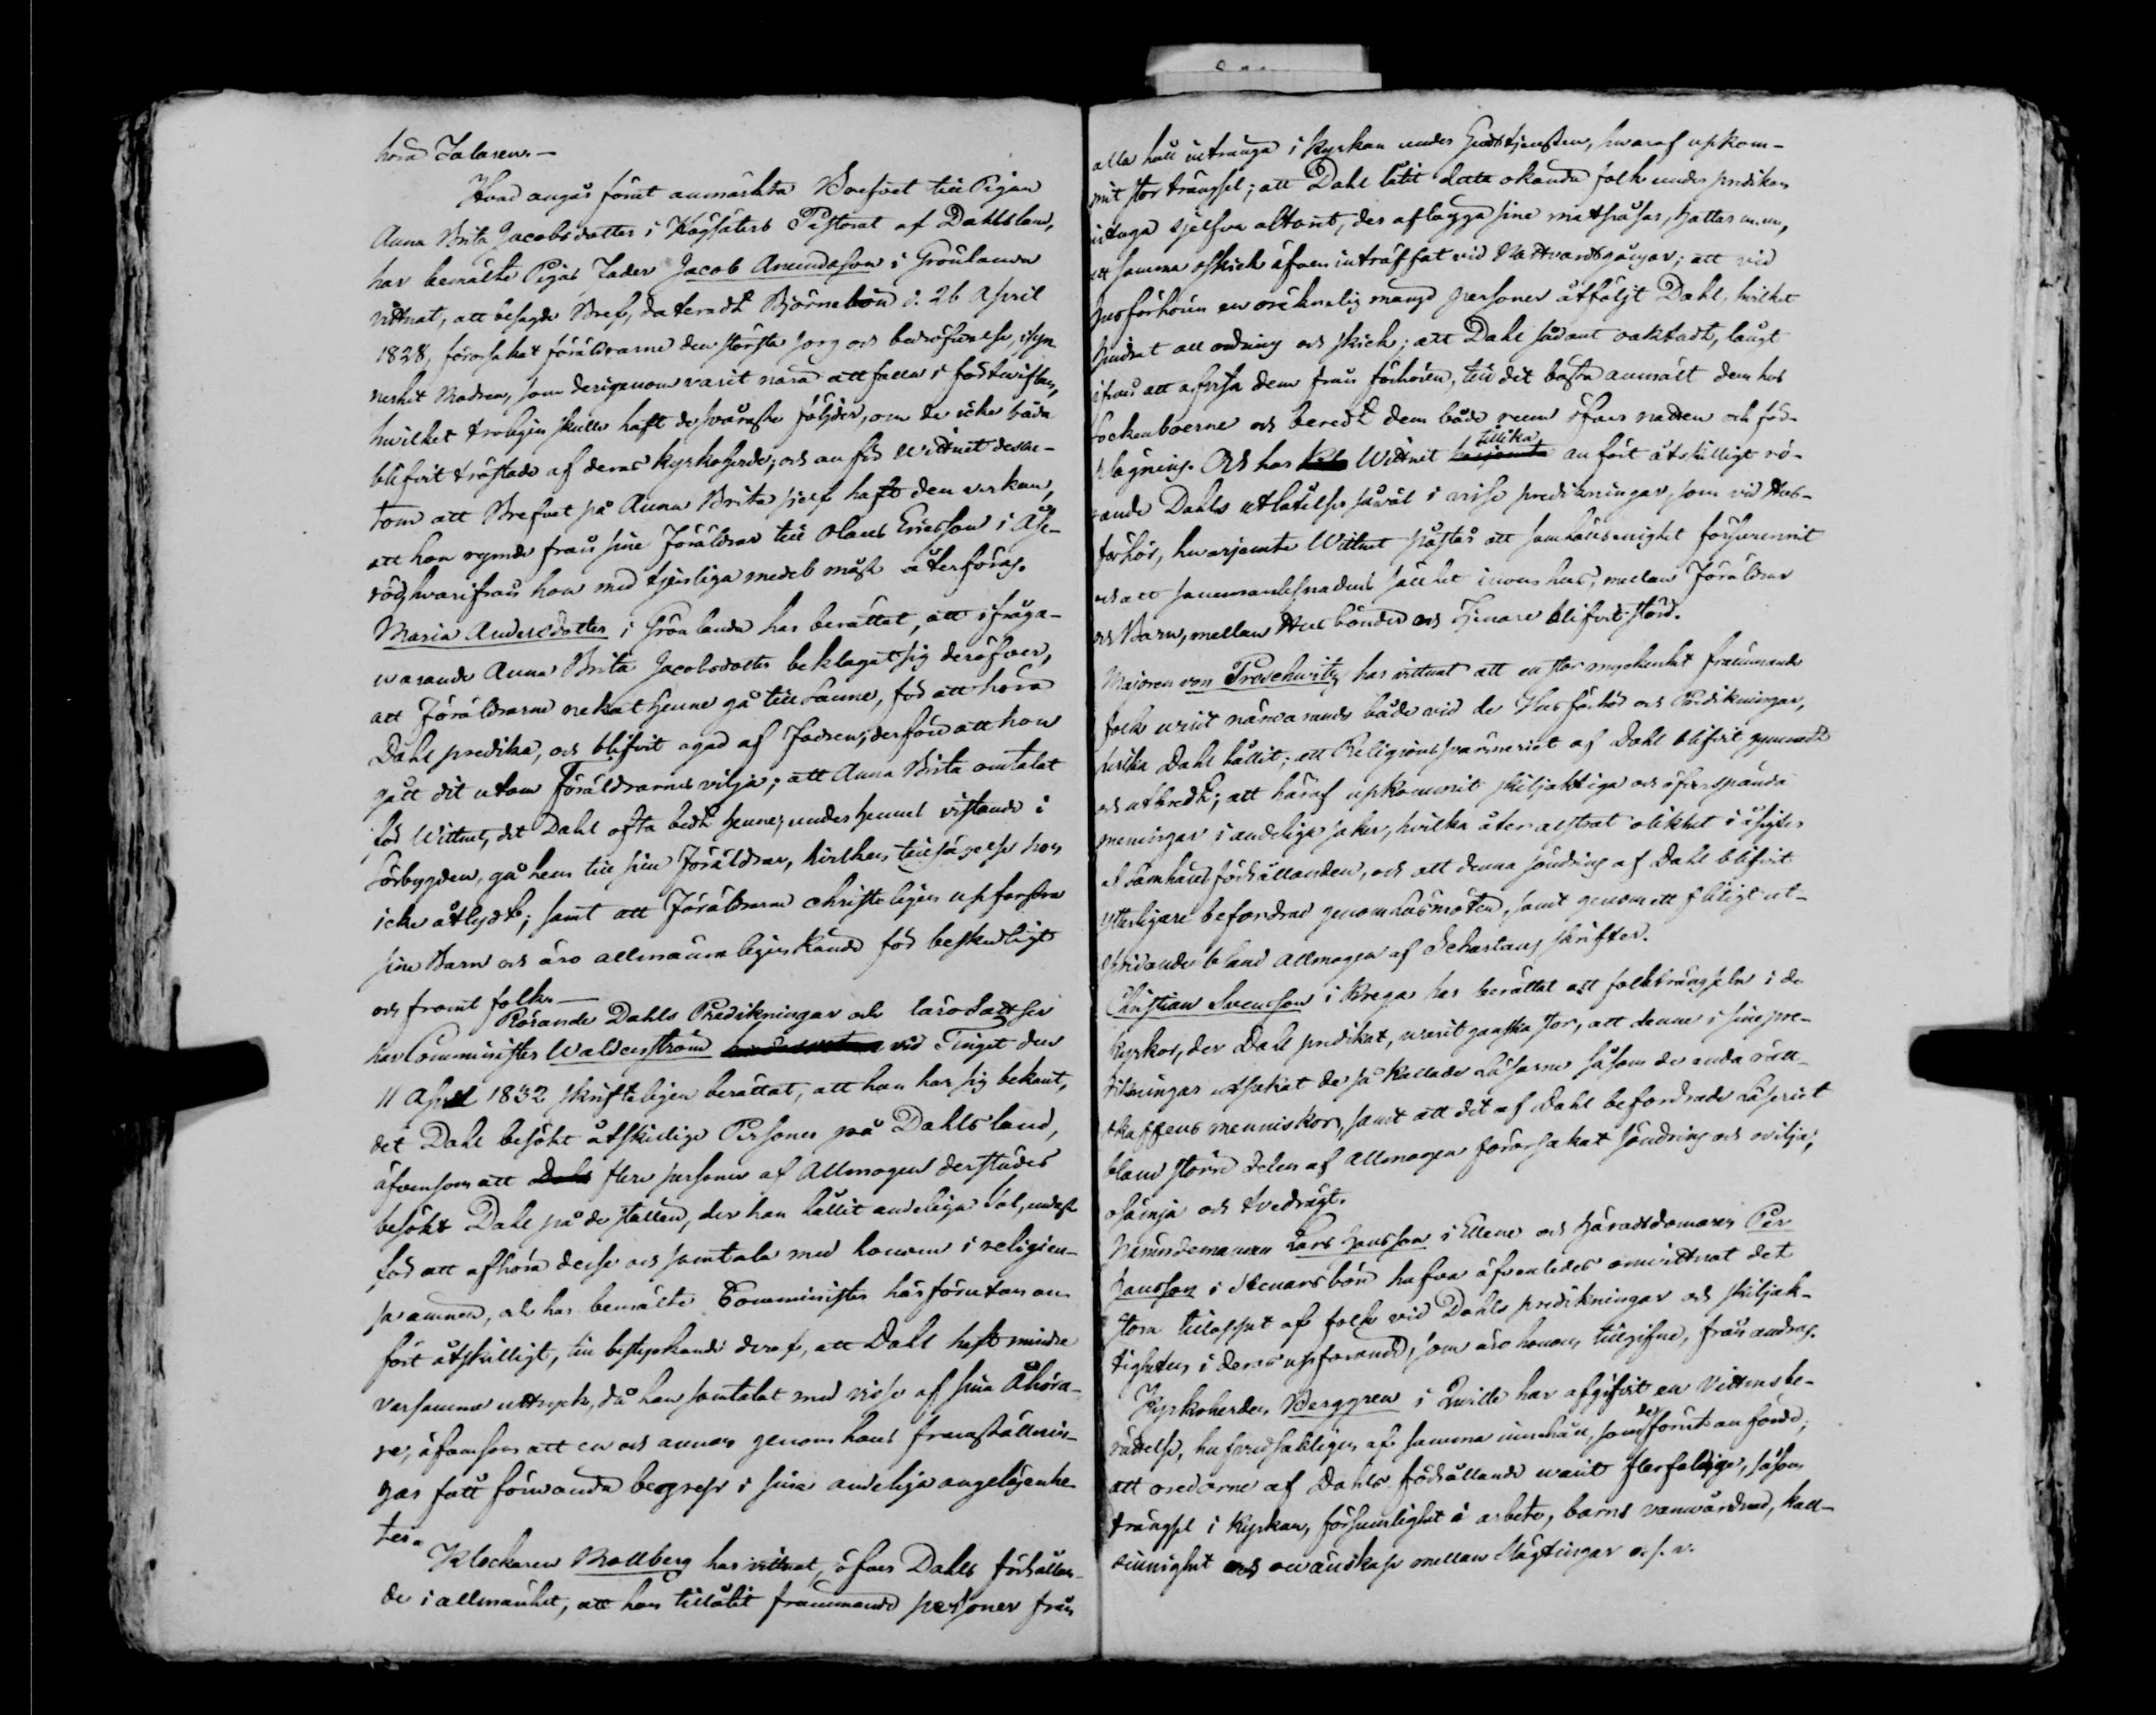 höra Talaren. —
Hvad angår förut anmärkta Brefvet till Pigan
Anna Brita Jacobsdotter i Högsäters Pastorat af Dahlsland,
har bemälte Pigas Fader Jacob Amundsson i Grönlanda
vittnat, att besagde Bref, dateradt Björnebön d. 26 April
1828, förorsakat föräldrarne den största sorg och bedröfvelse, isyn-
nerhet Modren, som derigenom varit nära att falla i förtviflan,
hvilket troligen skulle haft de svåraste följder, om de icke båda
blifvit tröstade af deras Kyrkoherde; och anförd Wittnet dessu-
tom att Brefvet på Anna Brita sjelf haft den verkan,
att hon rymde från sine Föräldrar till Olaus Ericsson i
röd, hvarifrån hon med tjenliga medel måst återföras.
Maria Andersdotter i Grönlanda har berättat, att ifråga-
warande Anna Brita Jacobsdotter beklagat sig deröfver,
att Föräldrarne nekat henne gå till Sanne, för att höra
Dahl predika, och blifvit agad af Fadren, derföre att hon
gått dit utom Föräldrarnes vilja; att Anna Brita omtalat
för Wittnet, det Dahl ofta bedt henne, under hennes vistande i
Sörbygden, gå hem till sine Föräldrar, hvilken tillsägelse hon
icke åtlydt; samt att Föräldrarne christeligen uppfostra
sine Barn och äro allmänneligen kände för beskedligt
och fromt folk. —
Rörande Dahls Predikningar och lärosattser
har Comminister Waldenström vid Tinget den
11 April 1832 skrifteligen berättat, att han har sig bekant,
det Dahl besökt åtskillige Personer på Dahlsland,
äfvensom att flere personer af Allmogen derstädes
besökt Dahl på de ställen, der han hållit andeliga tal, endast
för att afhöra desse och samtala med honom i religions-
ämnen, och har bemälte Comminister härförutom an-
fört åtskilligt, till bestyrkande deraf, att Dahl haft mindre
varsamma uttryck, då han samtalat med visse af sina Åhöra-
re, äfvensom att en och annan genom hans framställnin-
gar fått förvända begrepp i sina andeliga angelägenhe-
ter.
Klockaren Mollberg har vittnat, öfver Dahls förhållan-
de i allmänhet, att han tillåtit främmande personer från
alla håll intränga i Kyrkan under Gudstjensten, hvaraf uppkom-
mit stor trängsel; att Dahl låtit detta okända folk under predikan
intaga sjelfva altaret, der aflägga sine matsäckar, hattar m. m.,
att samma oskick äfven inträffat vid Nattvardsgångar; att vid
Husförhören en oräknelig mängd personer åtföljt Dahl, hvilket
hindrat all ordning och skick; att Dahl sådant oaktadt, långt
ifrån att afvisa dem från förhören, till det bästa anmält dem hos
Sockenboerne och beredt dem både rum öfver natten och för-
plägning. Och har Wittnet tillika anfört åtskilligt rö-
rande Dahls utlåtelser såväl i visse predikningar, som vid Hus-
förhör, hvarjemte Wittnet påstår att samhällsenighet försvunnit
och att sammanlefnadens sällhet inom hus, mellan Föräldrar
och Barn, mellan Husbönder och Tjenare blifvit störd.
Majoren von Proschwitz har vittnat att en stor myckenhet främmande
folk warit närvarande både vid de Husförhör och Predikningar,
hvilka Dahl hållit; att Religionssvärmeriet af Dahl blifvit gynnadt
och utbredt; att häraf uppkommit skiljaktiga och öfverspända
meningar i andeliga saker, hvilka åter alstrat olikhet i åsigter
af Samhällsförhållanden, och att denna söndring af Dahl blifvit
ytterligare befordrad genom Läsmöten, samt genom ett flitigt ut-
spridande bland Allmogen af Schartaus skrifter.
Christian Svensson i Brega har berättat att folkträngseln i de
Kyrkor, der Dahl predikat, warit ganska stor, att denne i sine pre-
dikningar utpekat de så kallade Läsarne såsom de enda rätt-
skaffens menniskor, samt att det af Dahl befordrade Läseriet
bland större delen af Allmogen förorsakat söndring och ovilja,
osämja och tvedrägt.
Nämndemannen Lars Jansson i Ellene och Häradsdomaren Per
Jansson i Stenarsbön hafva äfvenledes omvittnat det
stora tilloppet af folk vid Dahls predikningar och skiljak-
tigheten i deras uppförande, som äro honom tillgifne, från andras.
Kyrkoherden Berggren i Quille har afgifvit en Vittnesbe-
rättelse, hufvudsakligen af samma innehåll, som de förut anförde;
att oredorne af Dahls förhållande warit flerfaldige, såsom
trängsel i Kyrkan, försumlighet i arbete, barns vanvårdnad, kall-
sinnighet och ovänskap mellan Slägtingar o. s. v.